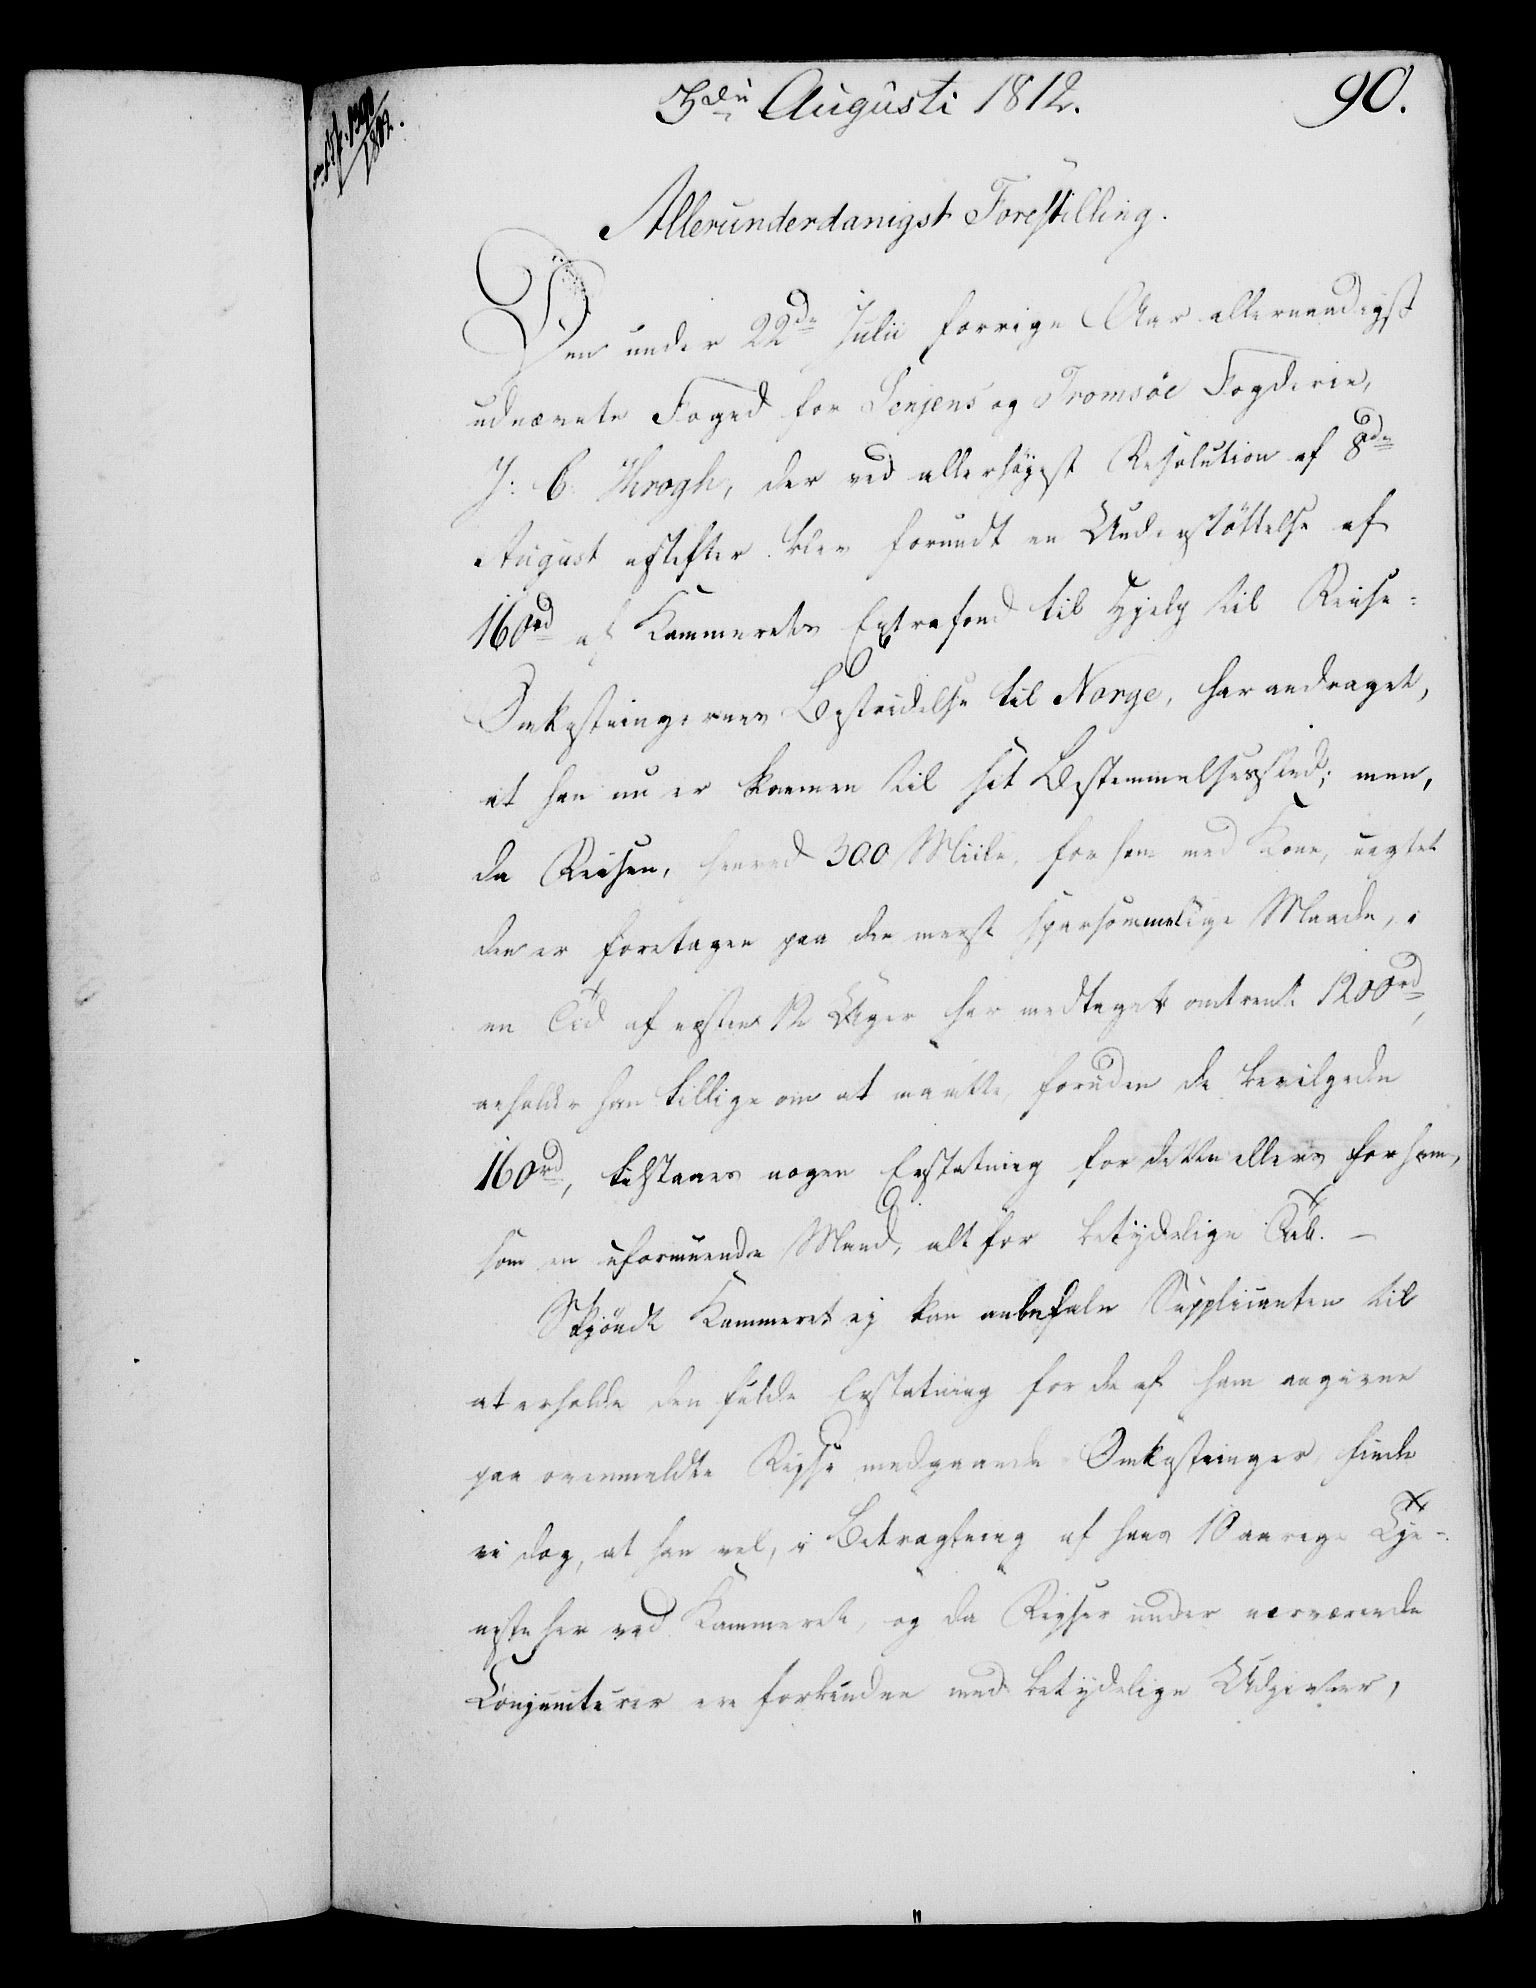 3de Augusti 1812.
90.
Allerunderdanigst Forestilling.
Den under 22de Julii forrige Aar allernaadigst
udnævnte Foged for Senjens og Tromsöe Fogderie,
J: C. Krogh, der ved allerhöyest Resolution af 8de
August næstefter blev forundt en Understöttelse af
160rd af Kammerets Extrafond til Hjelp til Reise-
Omkostningernes Bestridelse til Norge, har andraget,
at han nu er kommen til sit Bestemmelsessted; men,
da Reisen, henved 300 Miile, for ham med Kone, uagtet
den er foretagen paa den meest sparsommelige Maade, i
en Tid af næsten 12 Uger har medtaget omtrent 1200rd,
anholder han tillige om at maatte, foruden de bevilgede
160rd, tilstaaes nogen Erstatning for dette ellers for ham,
som en uformuende Mand, alt for betydelige Tab. -
Skjöndt Kammeret ej kan anbefale Supplicanten til
at erholde den fulde Erstatning for de af ham angivne
paa ovenmeldte Reyse medgaaede Omkostninger, finde
vi dog, at han vel, i Betragtning af hans 10 aarige Tje-
neste her ved Kammeret, og da Reyser under nærværende
Conjuncturer ere forbundne med betydelige Udgivter,